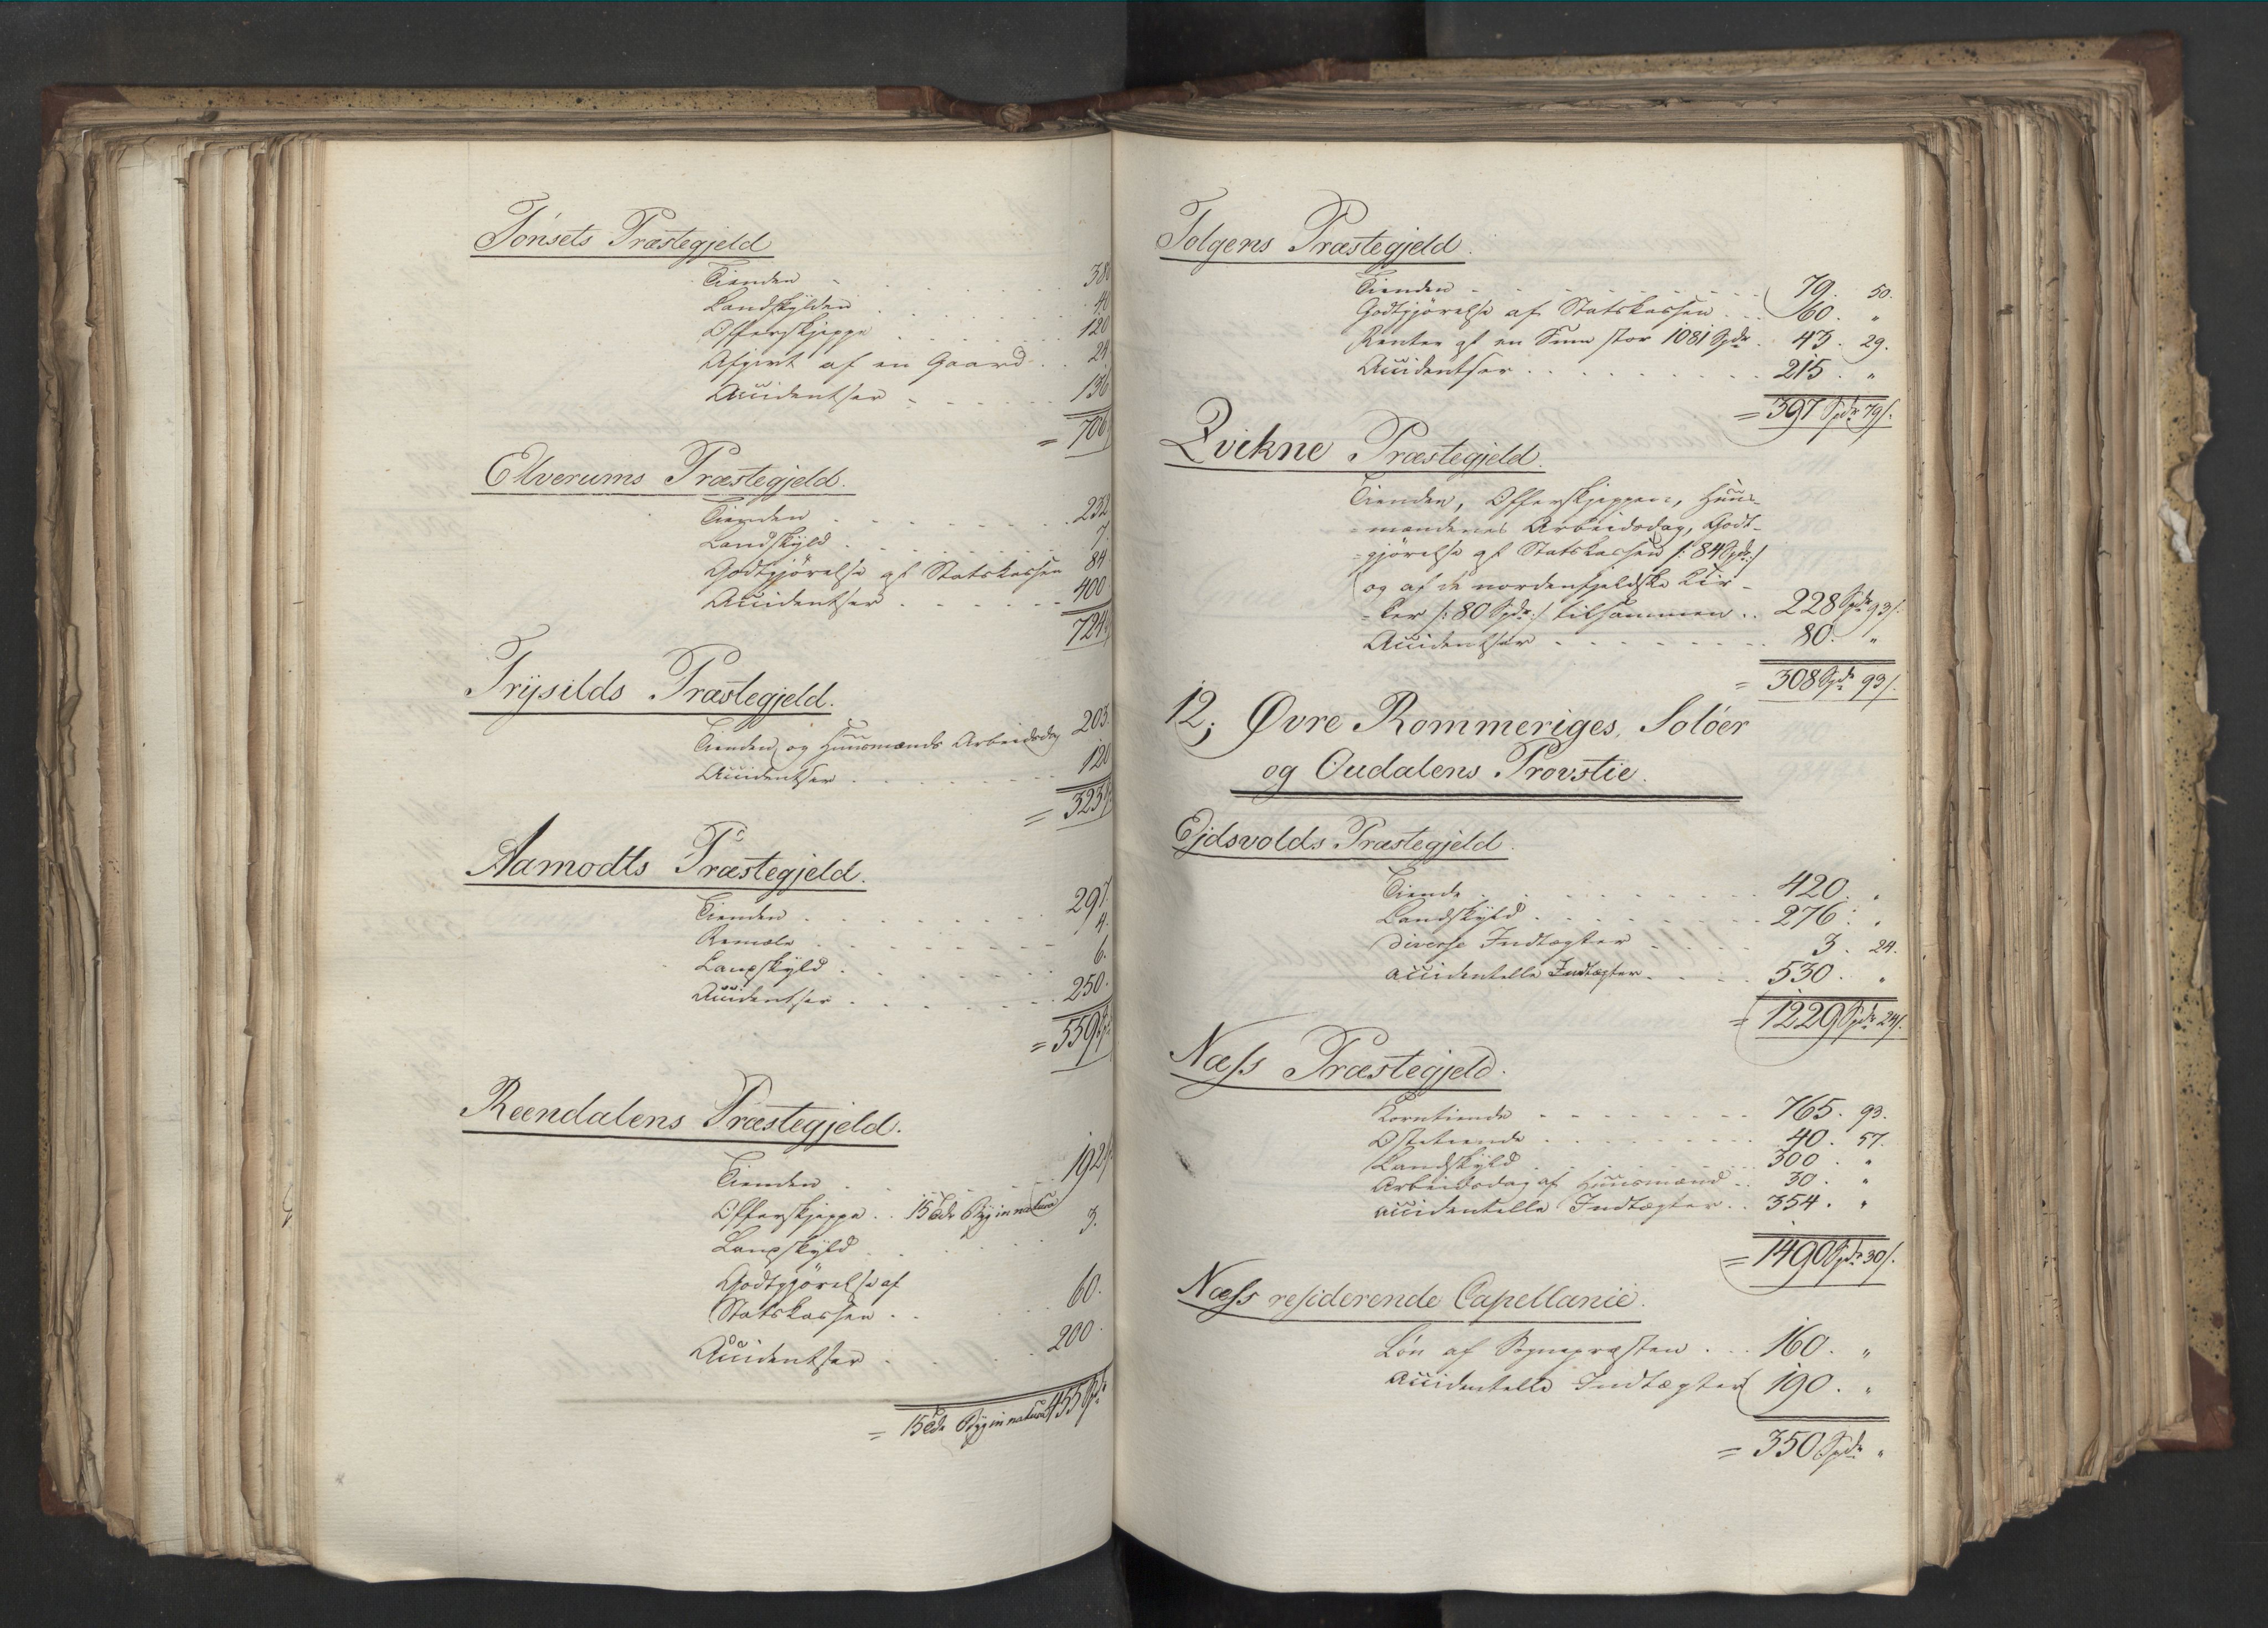 Tönsets Præstegjeld
Tienden 38
Landskylden 4
Offerskjeppe 120
Afgivt af en Gaard 24
Accidentser 136
= 706
Elverums Præstegjeld.
Tienden 232
Landskyld 7
Godtgjörelse af Statskassen 84
Accidentser 400
724
Trysilds Præstegjeld.
Tienden og Huusmænds Arbeidsdag 203
Accidentser 120
= 323
Aamodts Præstegjeld.
Tienden 297
Remale 4.
Landskyld 6.
Accidentser 250.
= 559
Reendalens Præstegjeld.
Tienden 192
Offerskjeppe 15 Tdr Byg in natura
Landskyld 3.
Godtgjörelse af
Statskassen 60.
Accidentser 200.
= 15 Tdr Byg in natura 455 Spdr
Tolgens Præstegjeld.
Tienden 79. 50.
Godtgjörelse af Statskassen 60. "
Renter af en Sum stor 1081 Spdr. 43. 29.
Accidentser 215. "
= 397 Spdr 79 s.
Qvikne Præstegjeld.
Tienden, Offerskjeppen, Huus-
mændenes Arbeidsdag, Godt-
gjörelse af Statskassen /: 84 Spdr :/
og af de nordenfjeldske Kir-
ker /: 80 Spdr :/ tilsammen 228 Spdr 93 s.
Accidentser 80. "
= 308 Spdr 93 s.
12, Øvre Rommeriges, Solöer
og Oudalens Provstie.
Ejdsvolds Præstegjeld.
Tiende 420. "
Landskyld 276. "
diverse Indtægter 3. 24.
accidentelle Indtægter 530. "
= 1229 Spdr 24 s.
Næss Præstegjeld.
Korntiende 765. 93.
Ostetiende 40. 57.
Landskyld 300. "
Arbeidsdag af Huusmænd 30. "
accidentelle Indtægter 354. "
= 1490 Spdr 30 s.
Næss residerende Capellanie.
Lön af Sognepræsten 160. "
Accidentelle Indtægter 190. "
= 350 Spdr "